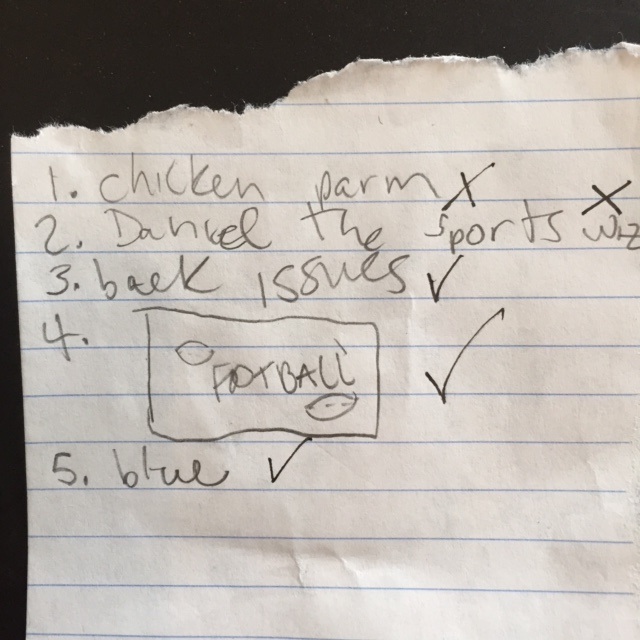 1. chicken parm X
2. Daniel the sports wiz X
3. back issues ✓
4. FOOTBALL ✓
5. blue ✓